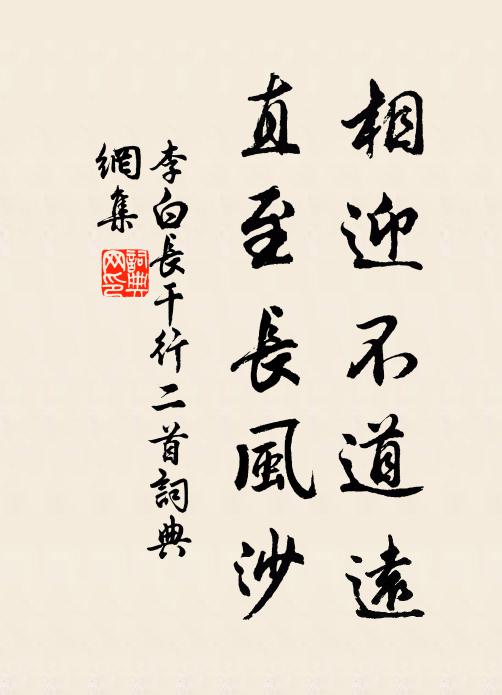 相迎不道遠
直至長風沙
李白長干行二首詞典
網集
詞典
网印